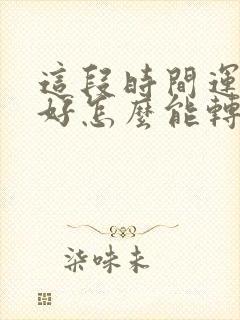 這段時間運
好怎麼能轉
柒味未